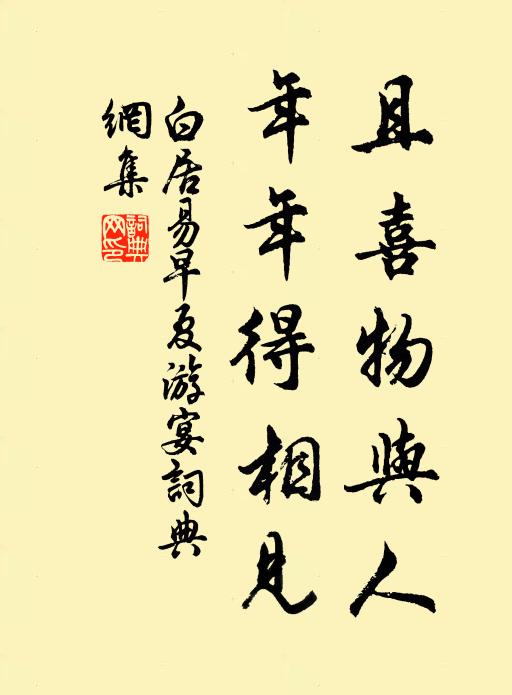 且喜物與人
年年得相見
白居易早夏游宴詞典
網集
詞典網印